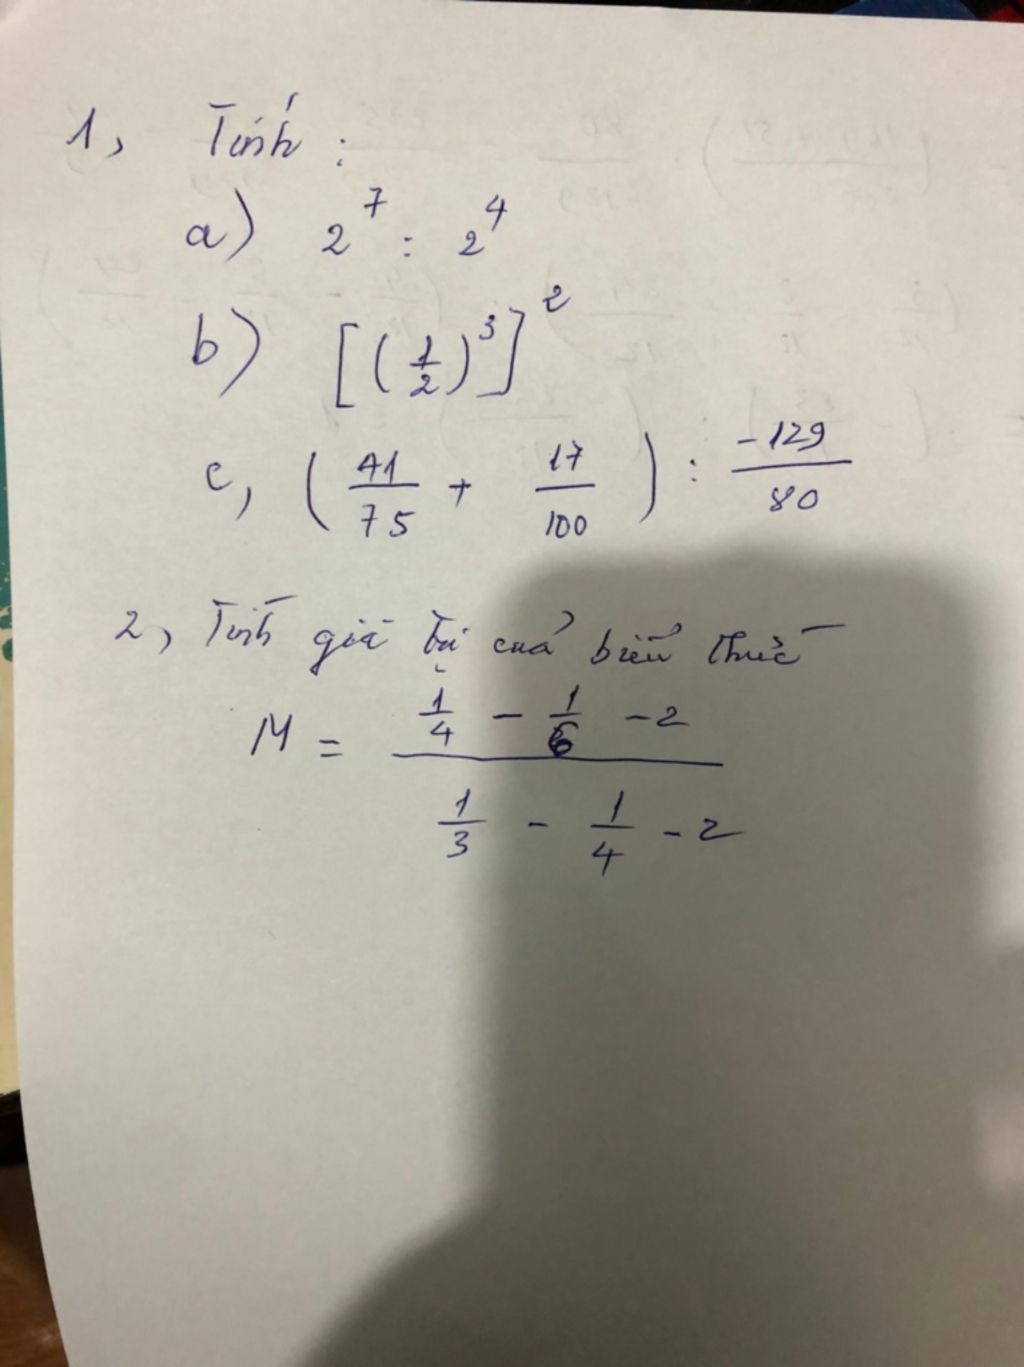 1, Tính :
a) 2^7 : 2^4
b) [(1/2)^3]^2
c, (41/75 + 17/100) : -129/80
2, Tính giá trị của biểu thức
M = (1/4 - 1/6 - 2) / (1/3 - 1/4 - 2)